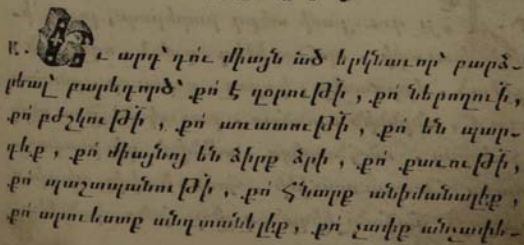 Եւ արդ՝ դու միայն ած երկնաւոր՝ բարձ-
րեալ՝ բարեգործ՝ քո է զօրութի, քո ներողուի,
քո բժշկութի, քո առատութի, քո են պար-
գևք, քո միայնոյ են ձիրք ձրի, քո քաւութի,
քո պաշտպանութի, քո հնարք անիմանալիք,
քո արուեստք անգտանելիք, քո չափք անչափե-